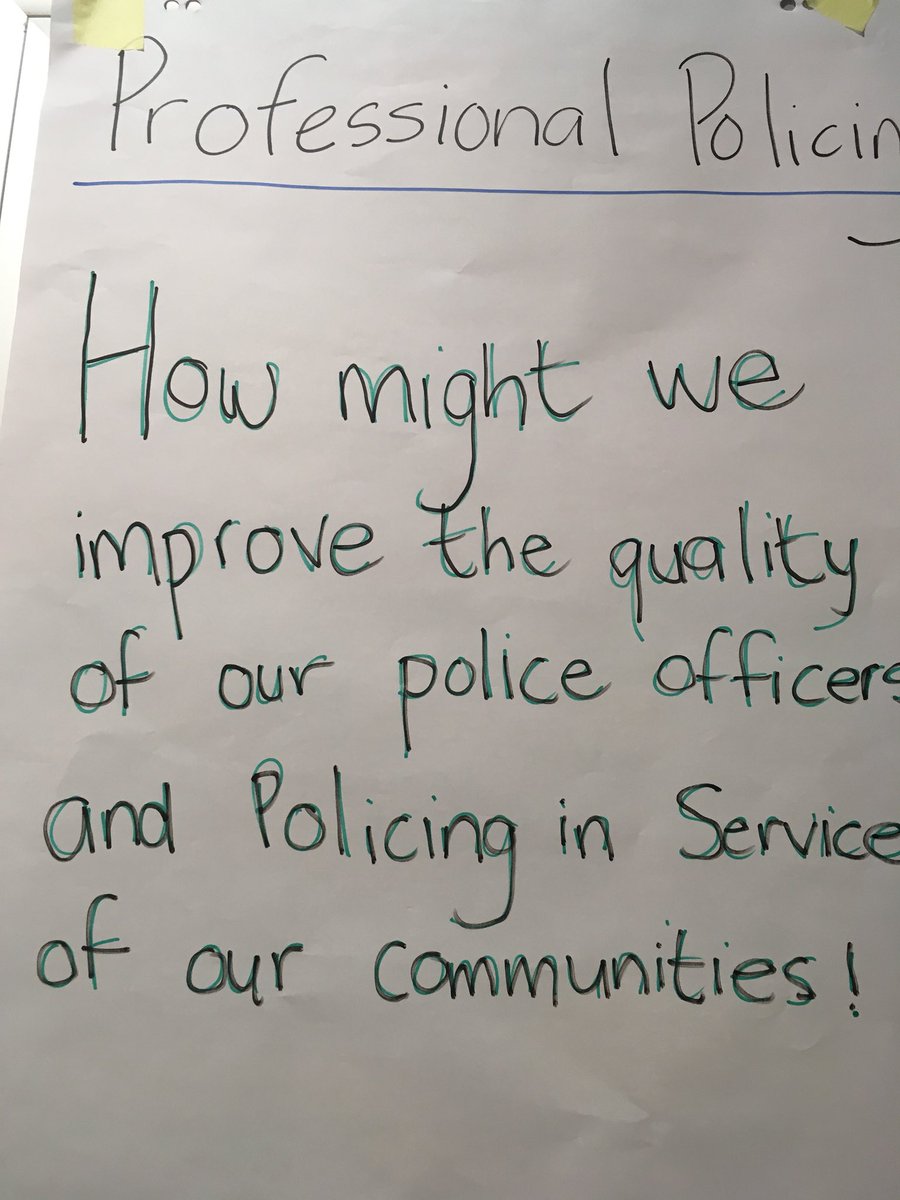 Professional Policing
How might we
improve the quality
of our police officers
and Policing in Service
of our communities!